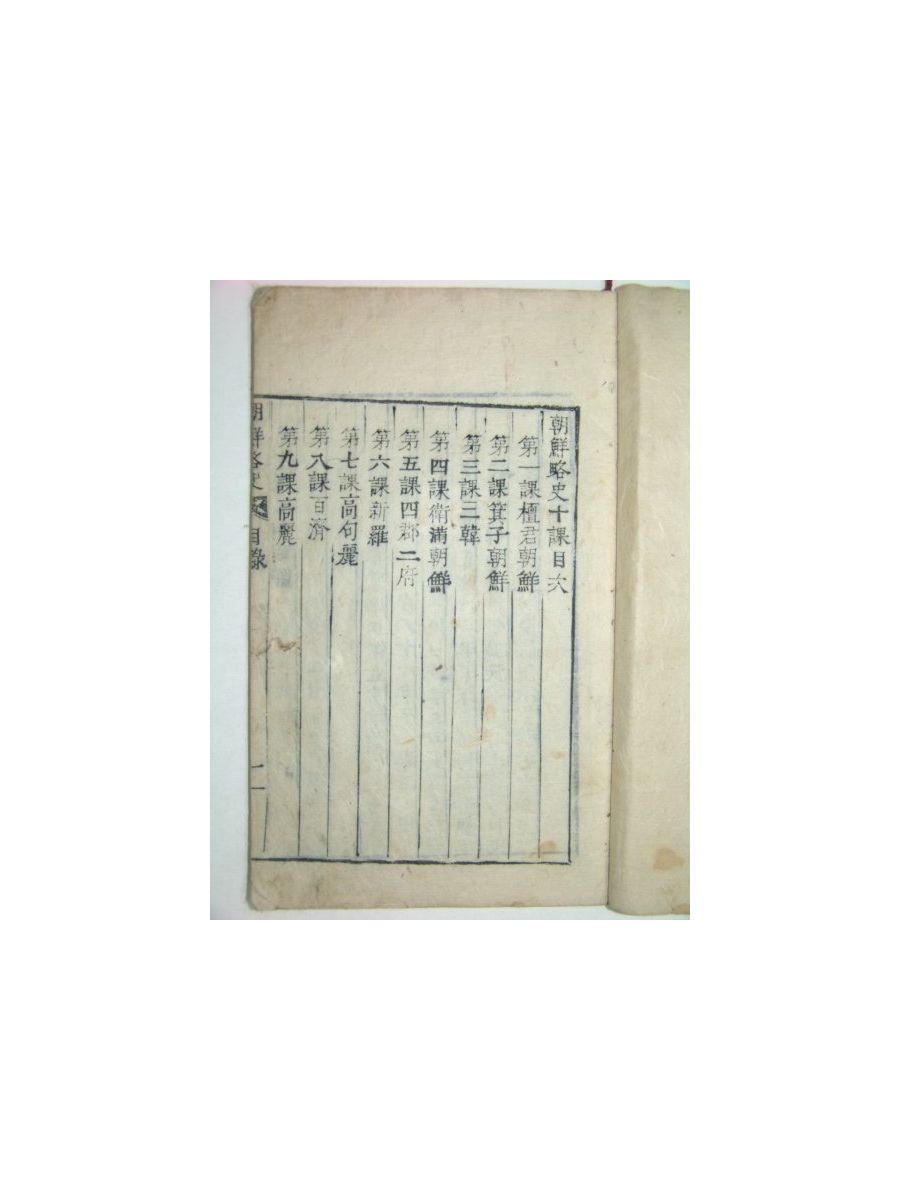 朝鮮略史十課目次
第一課檀君朝鮮
第二課箕子朝鮮
第三課三韓
第四課衛滿朝鮮
第五課四郡二府
第六課新羅
第七課高句麗
第八課百濟
第九課高麗
朝鮮略史 目錄 一